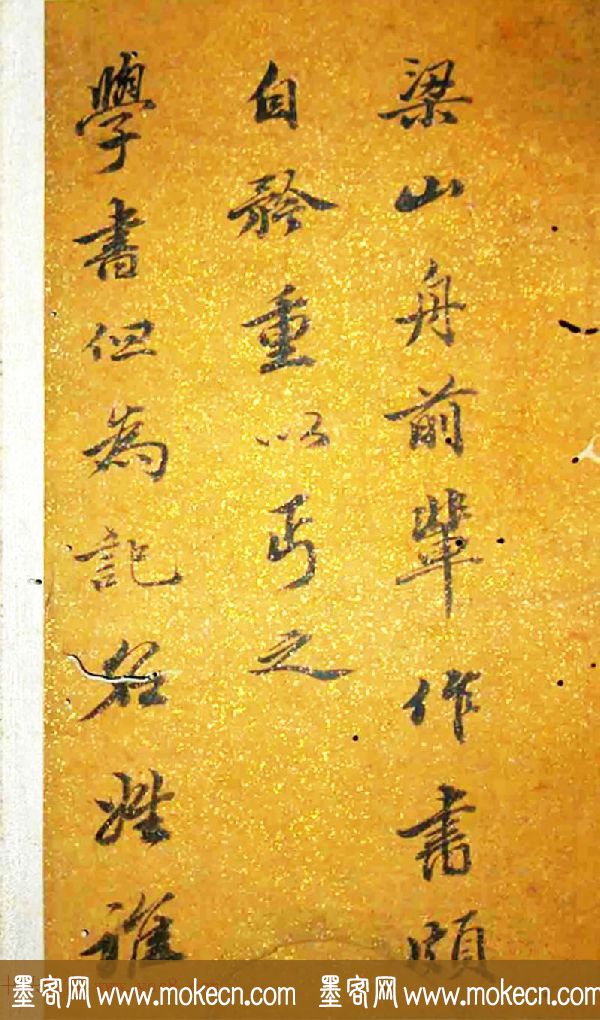 梁山舟前輩作書頗
自矜重以丐之
學書但為記名姓誰
墨客网 www.mokecn.com 墨客网 www.mokecn.com